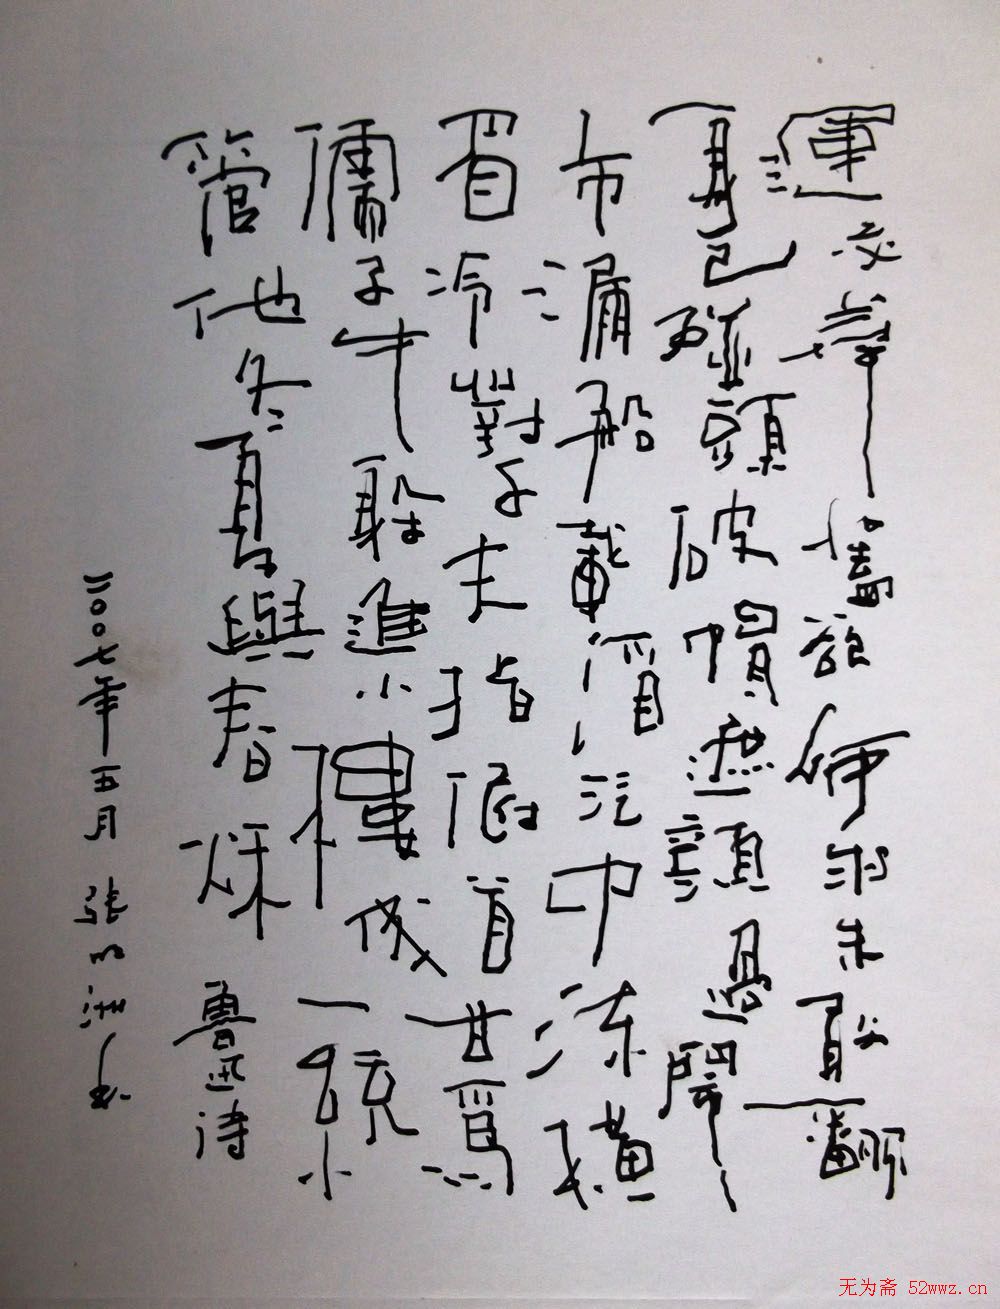 運交華蓋欲何求未敢翻
身已碰頭破帽遮顏過鬧
市漏船載酒泛中流横
眉冷對千夫指俯首甘爲
孺子牛躲進小樓成一統
管他冬夏與春秋 魯迅詩
二〇〇七年五月 張 洲書
无为斋 52wwz.cn